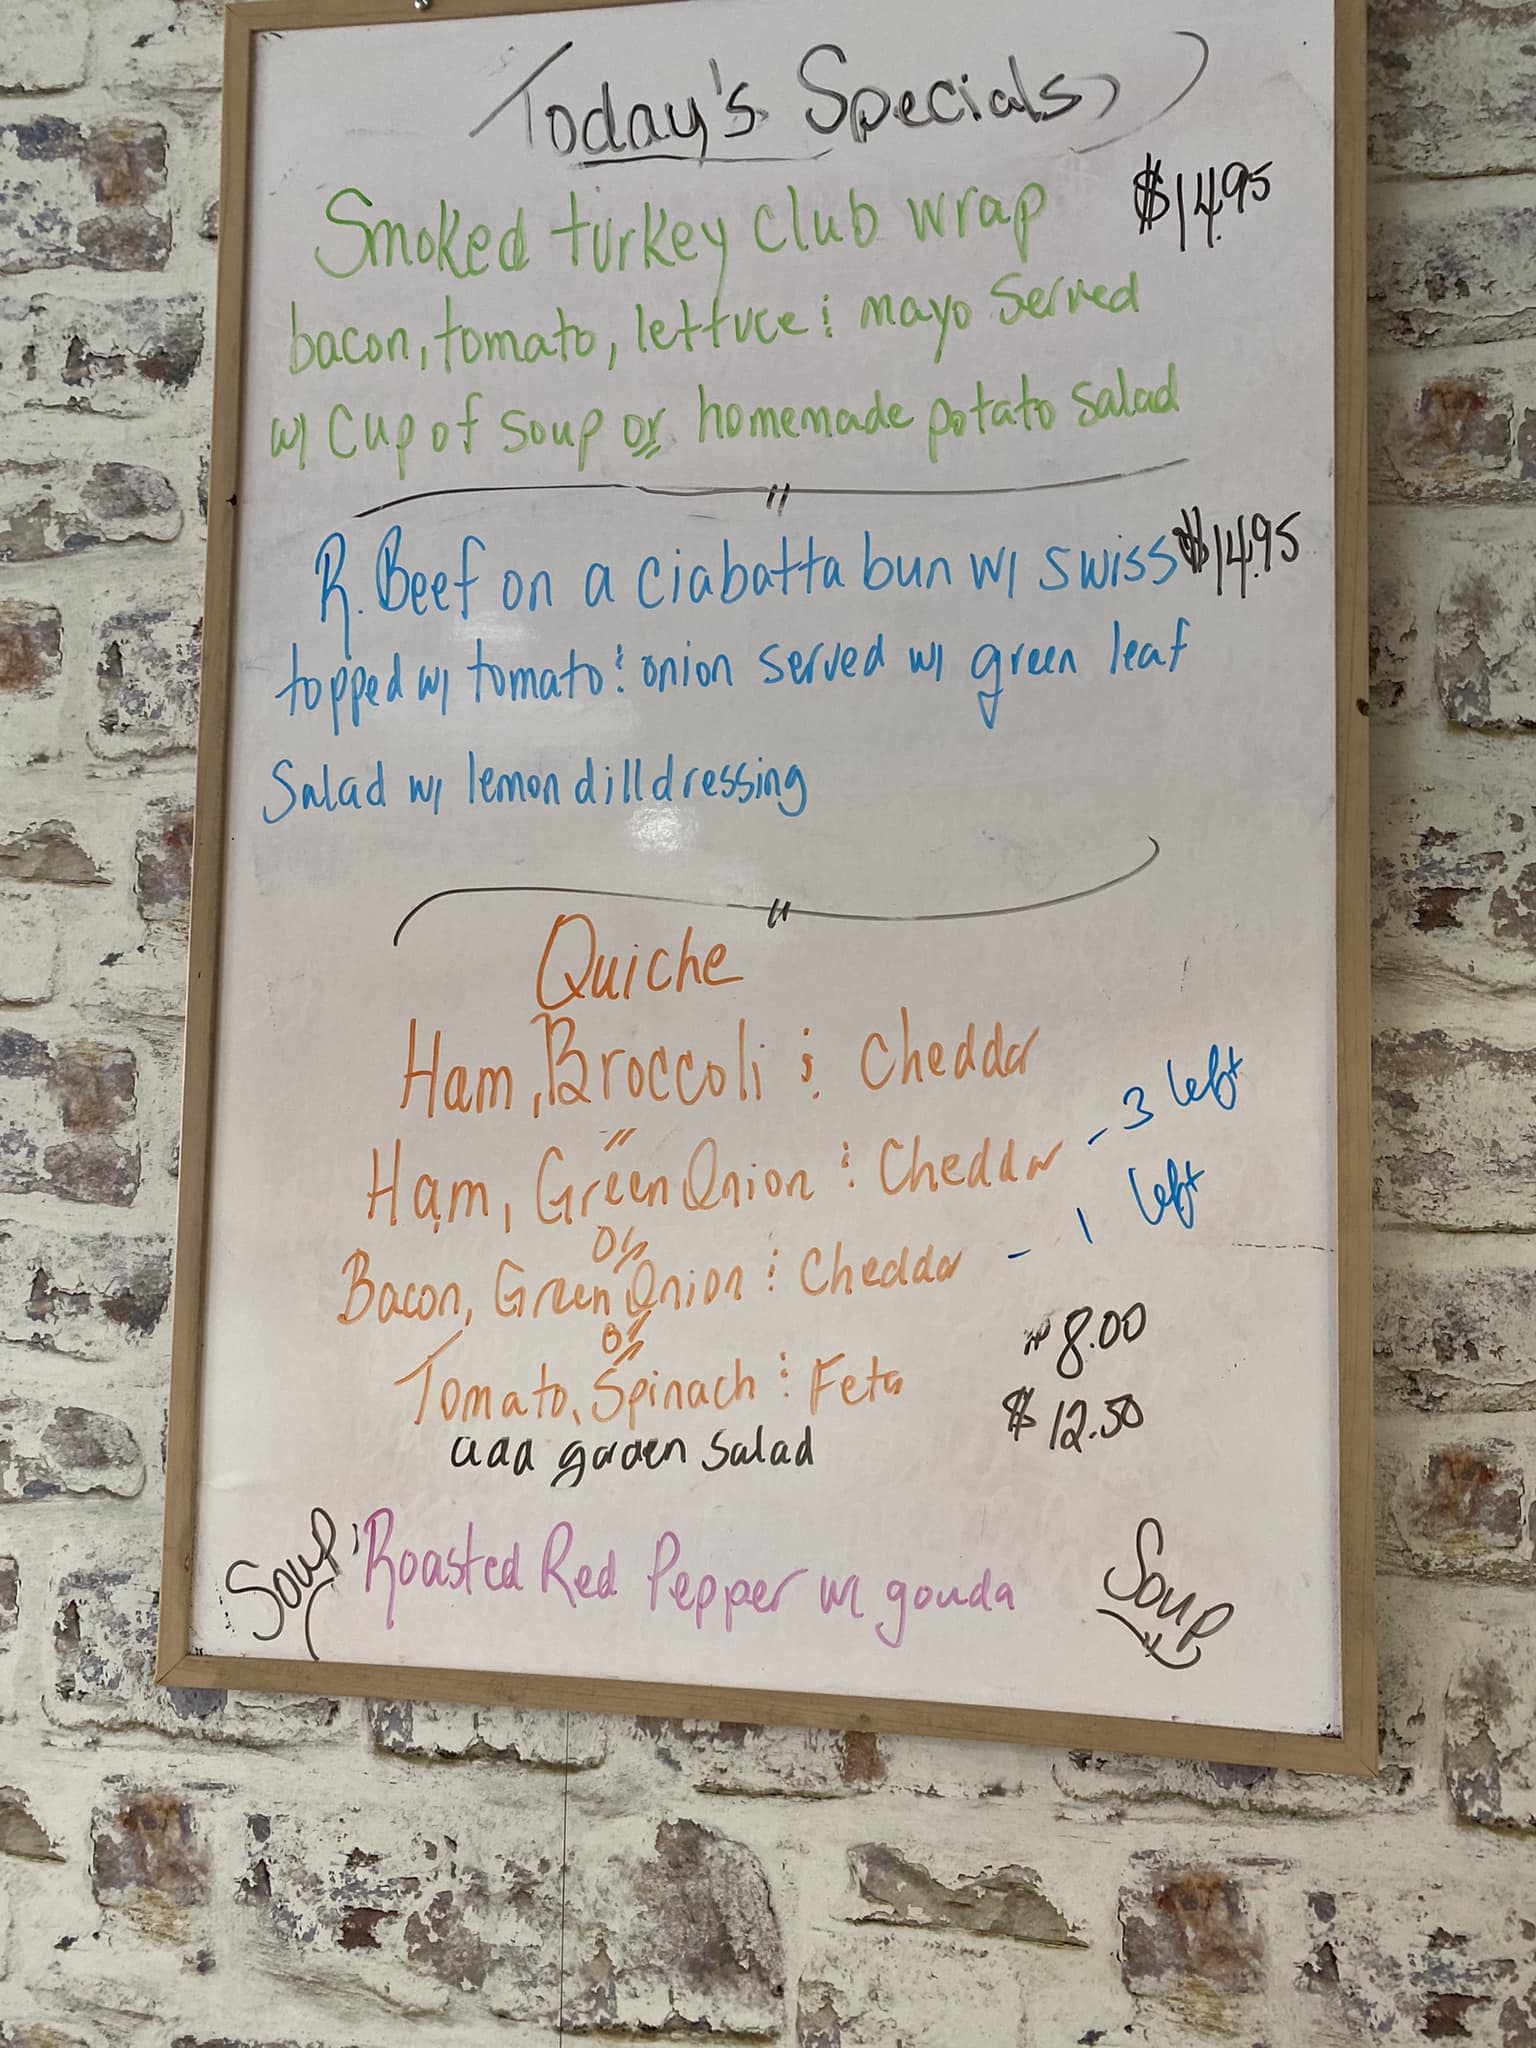 Today's Specials
Smoked turkey club wrap $14.95
bacon, tomato, lettuce & mayo served
w/ cup of soup or homemade potato salad
R. Beef on a ciabatta bun w/ swiss $14.95
topped w/ tomato & onion served w/ green leaf
Salad w/ lemon dill dressing
Quiche
Ham, Broccoli & Cheddar
Ham, Green Onion & Cheddar - 3 left
or
Bacon, Green Onion & Cheddar - 1 left
or
Tomato, Spinach & Feta $8.00
add garden salad $12.50
Soup, Roasted Red Pepper w/ gouda Soup